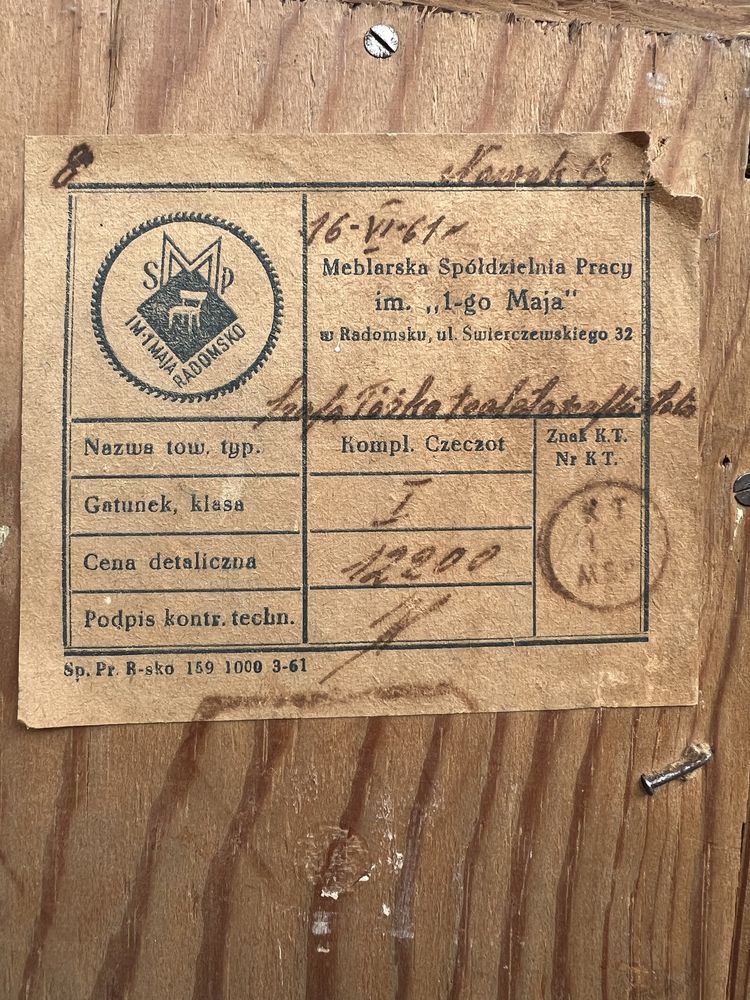 8 Nowak
16-VI-61 r
SMP
IM·1 MAJA RADOMSKO
Meblarska Spółdzielnia Pracy
im. „1-go Maja"
w Radomsku, ul. Świerczewskiego 32
szafa toaleta
Nazwa tow. typ. Kompl. Czeczot Znak K.T.
Nr K T.
Gatunek, klasa I
K T
1
Cena detaliczna 12200
Podpis kontr. techn.
Sp. Pr. R-sko 159 1000 3-61